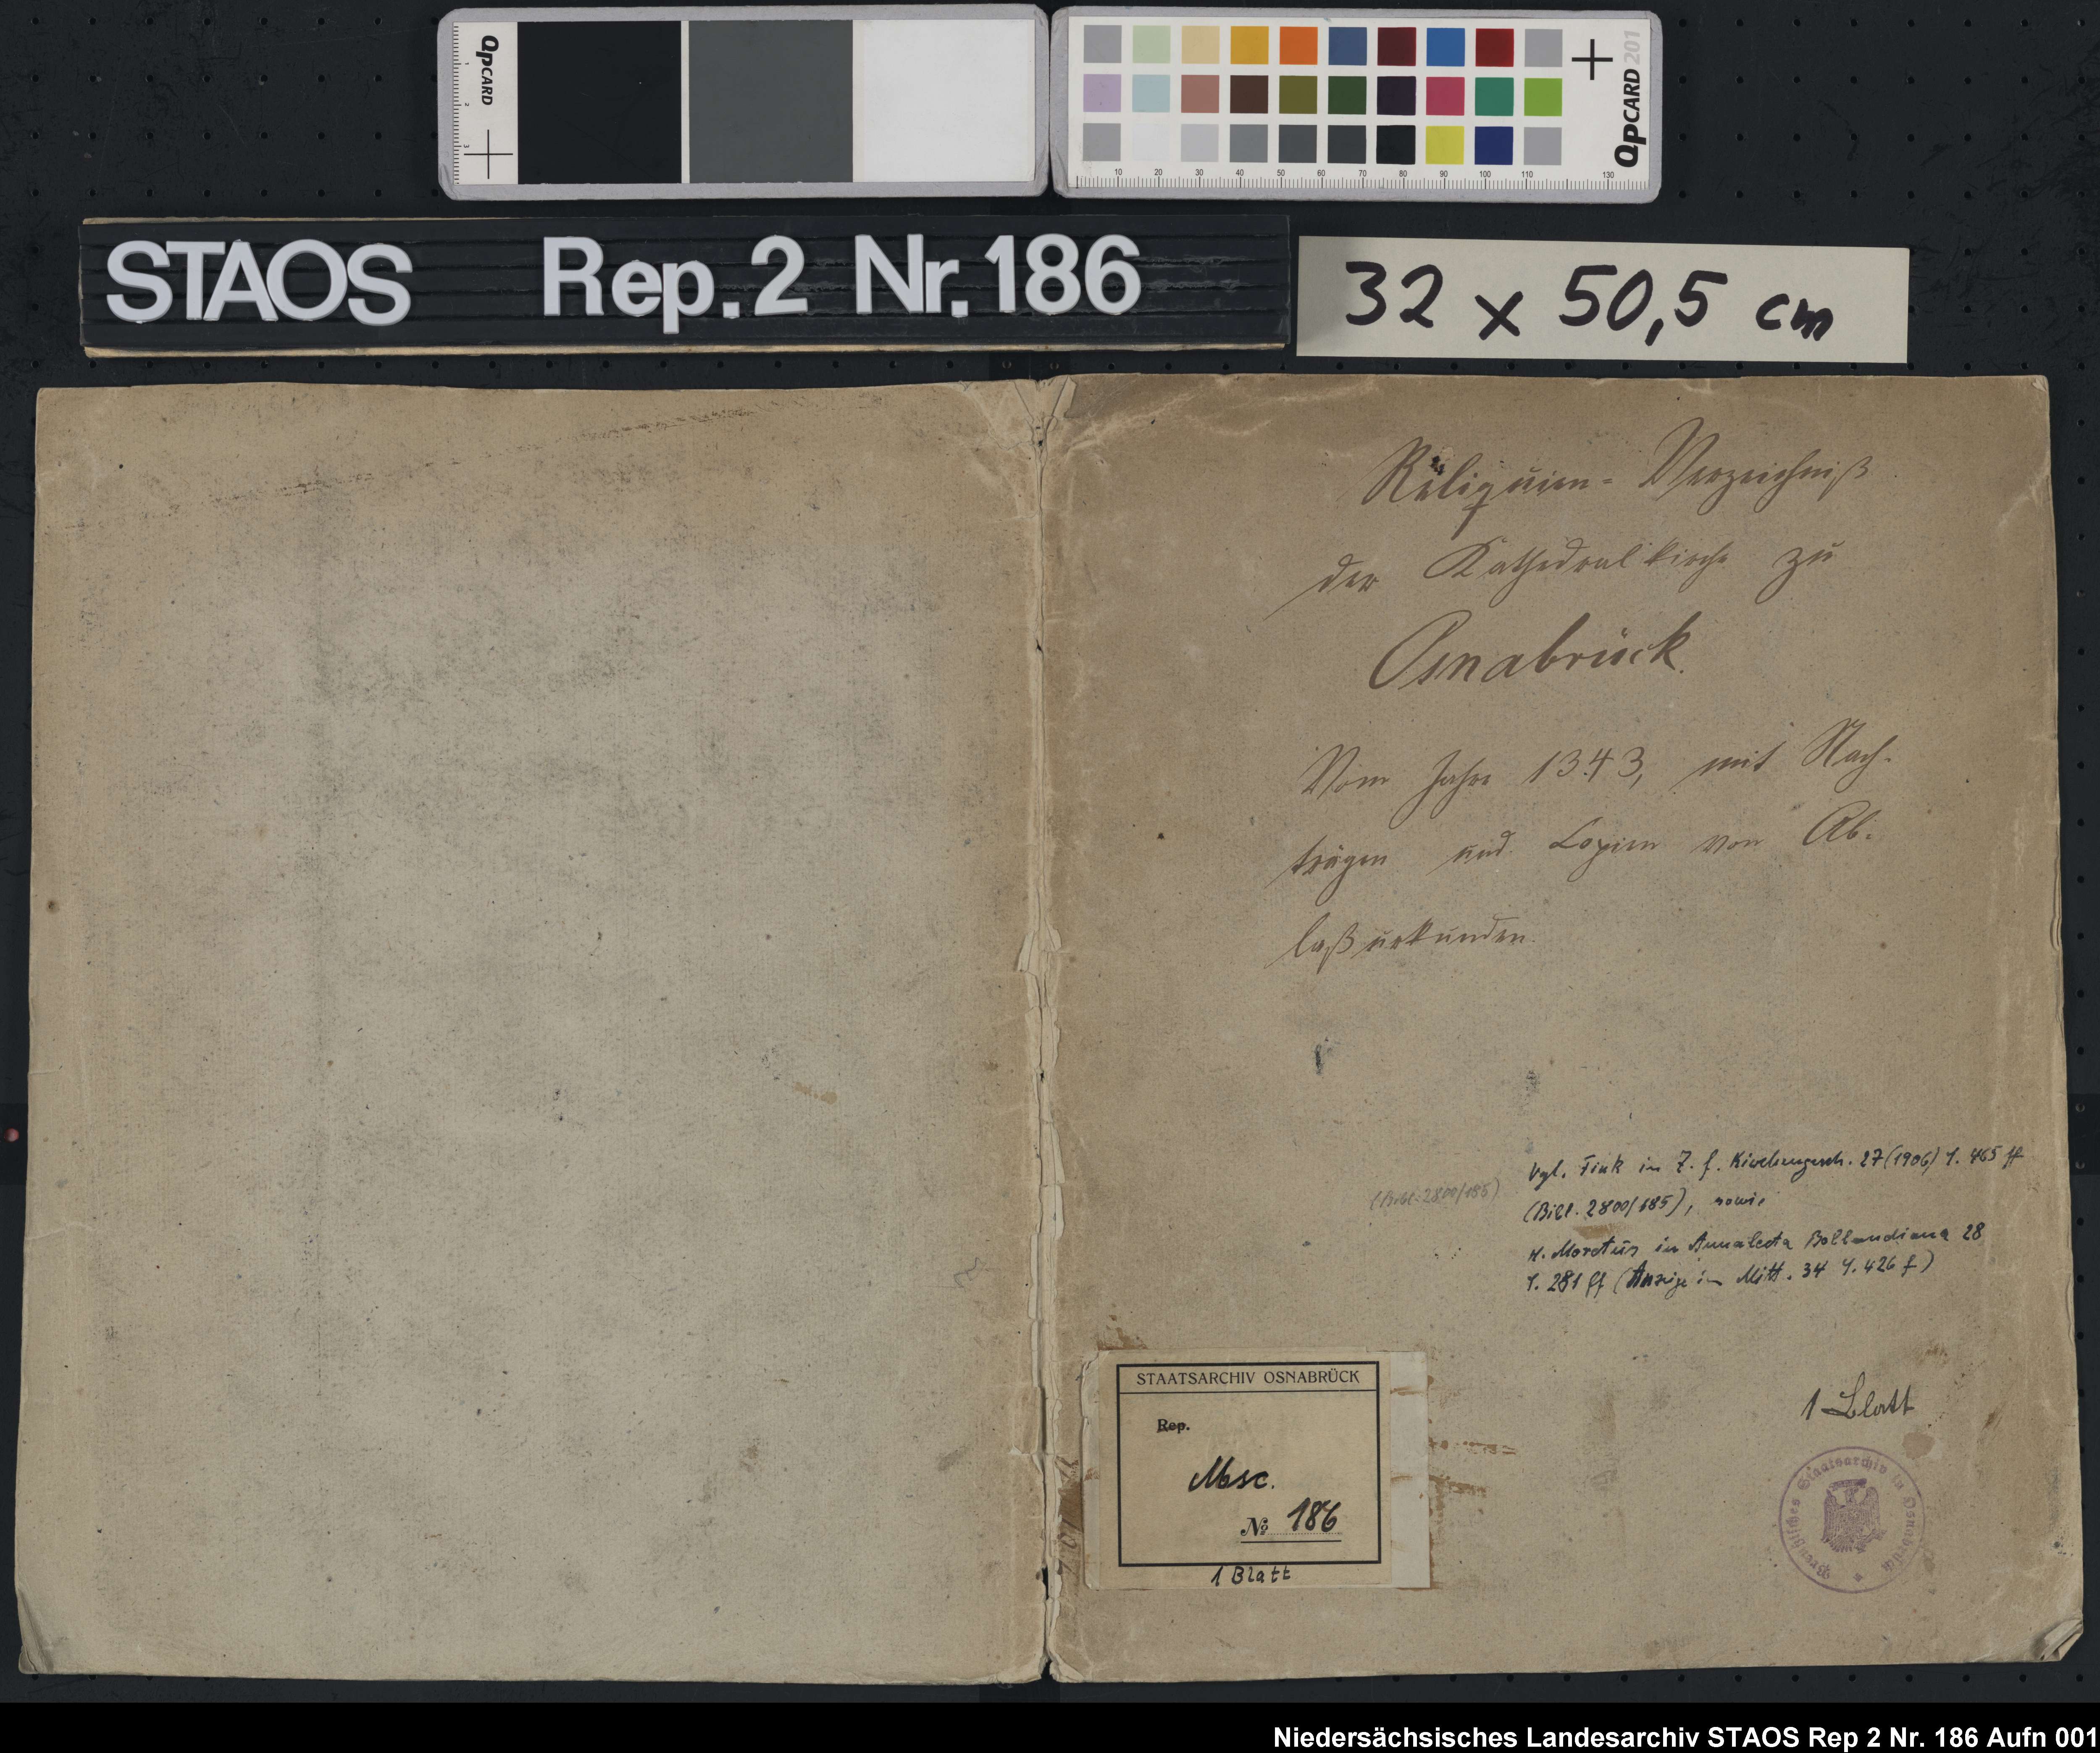 QPCARD
1
2
3
QPCARD 201
10 20 30 40 50 60 70 80 90 100 110 130
STAOS Rep. 2 Nr. 186
32 x 50,5 cm
Reliquien = Verzeichniß
der Kathedralkirche zu
Osnabrück.
Vom Jahre 1343, mit Nach-
trägen und Copien von Ab-
laßurkunden.
Vgl. Fink in Z. f. Kirchengesch. 27 (1906) S. 465 ff
(Bibl. 2800/185)
(Bibl. 2800/185), sowie
H. Moretus in Analecta Bollandiana 28
S. 281 ff (Anzeige in Mitt. 34 S. 426 f)
1 Blatt
STAATSARCHIV OSNABRÜCK
Rep.
Msc.
No 186
1 Blatt
Preußisches Staatsarchiv in Osnabrück
Niedersächsisches Landesarchiv STAOS Rep 2 Nr. 186 Aufn 001